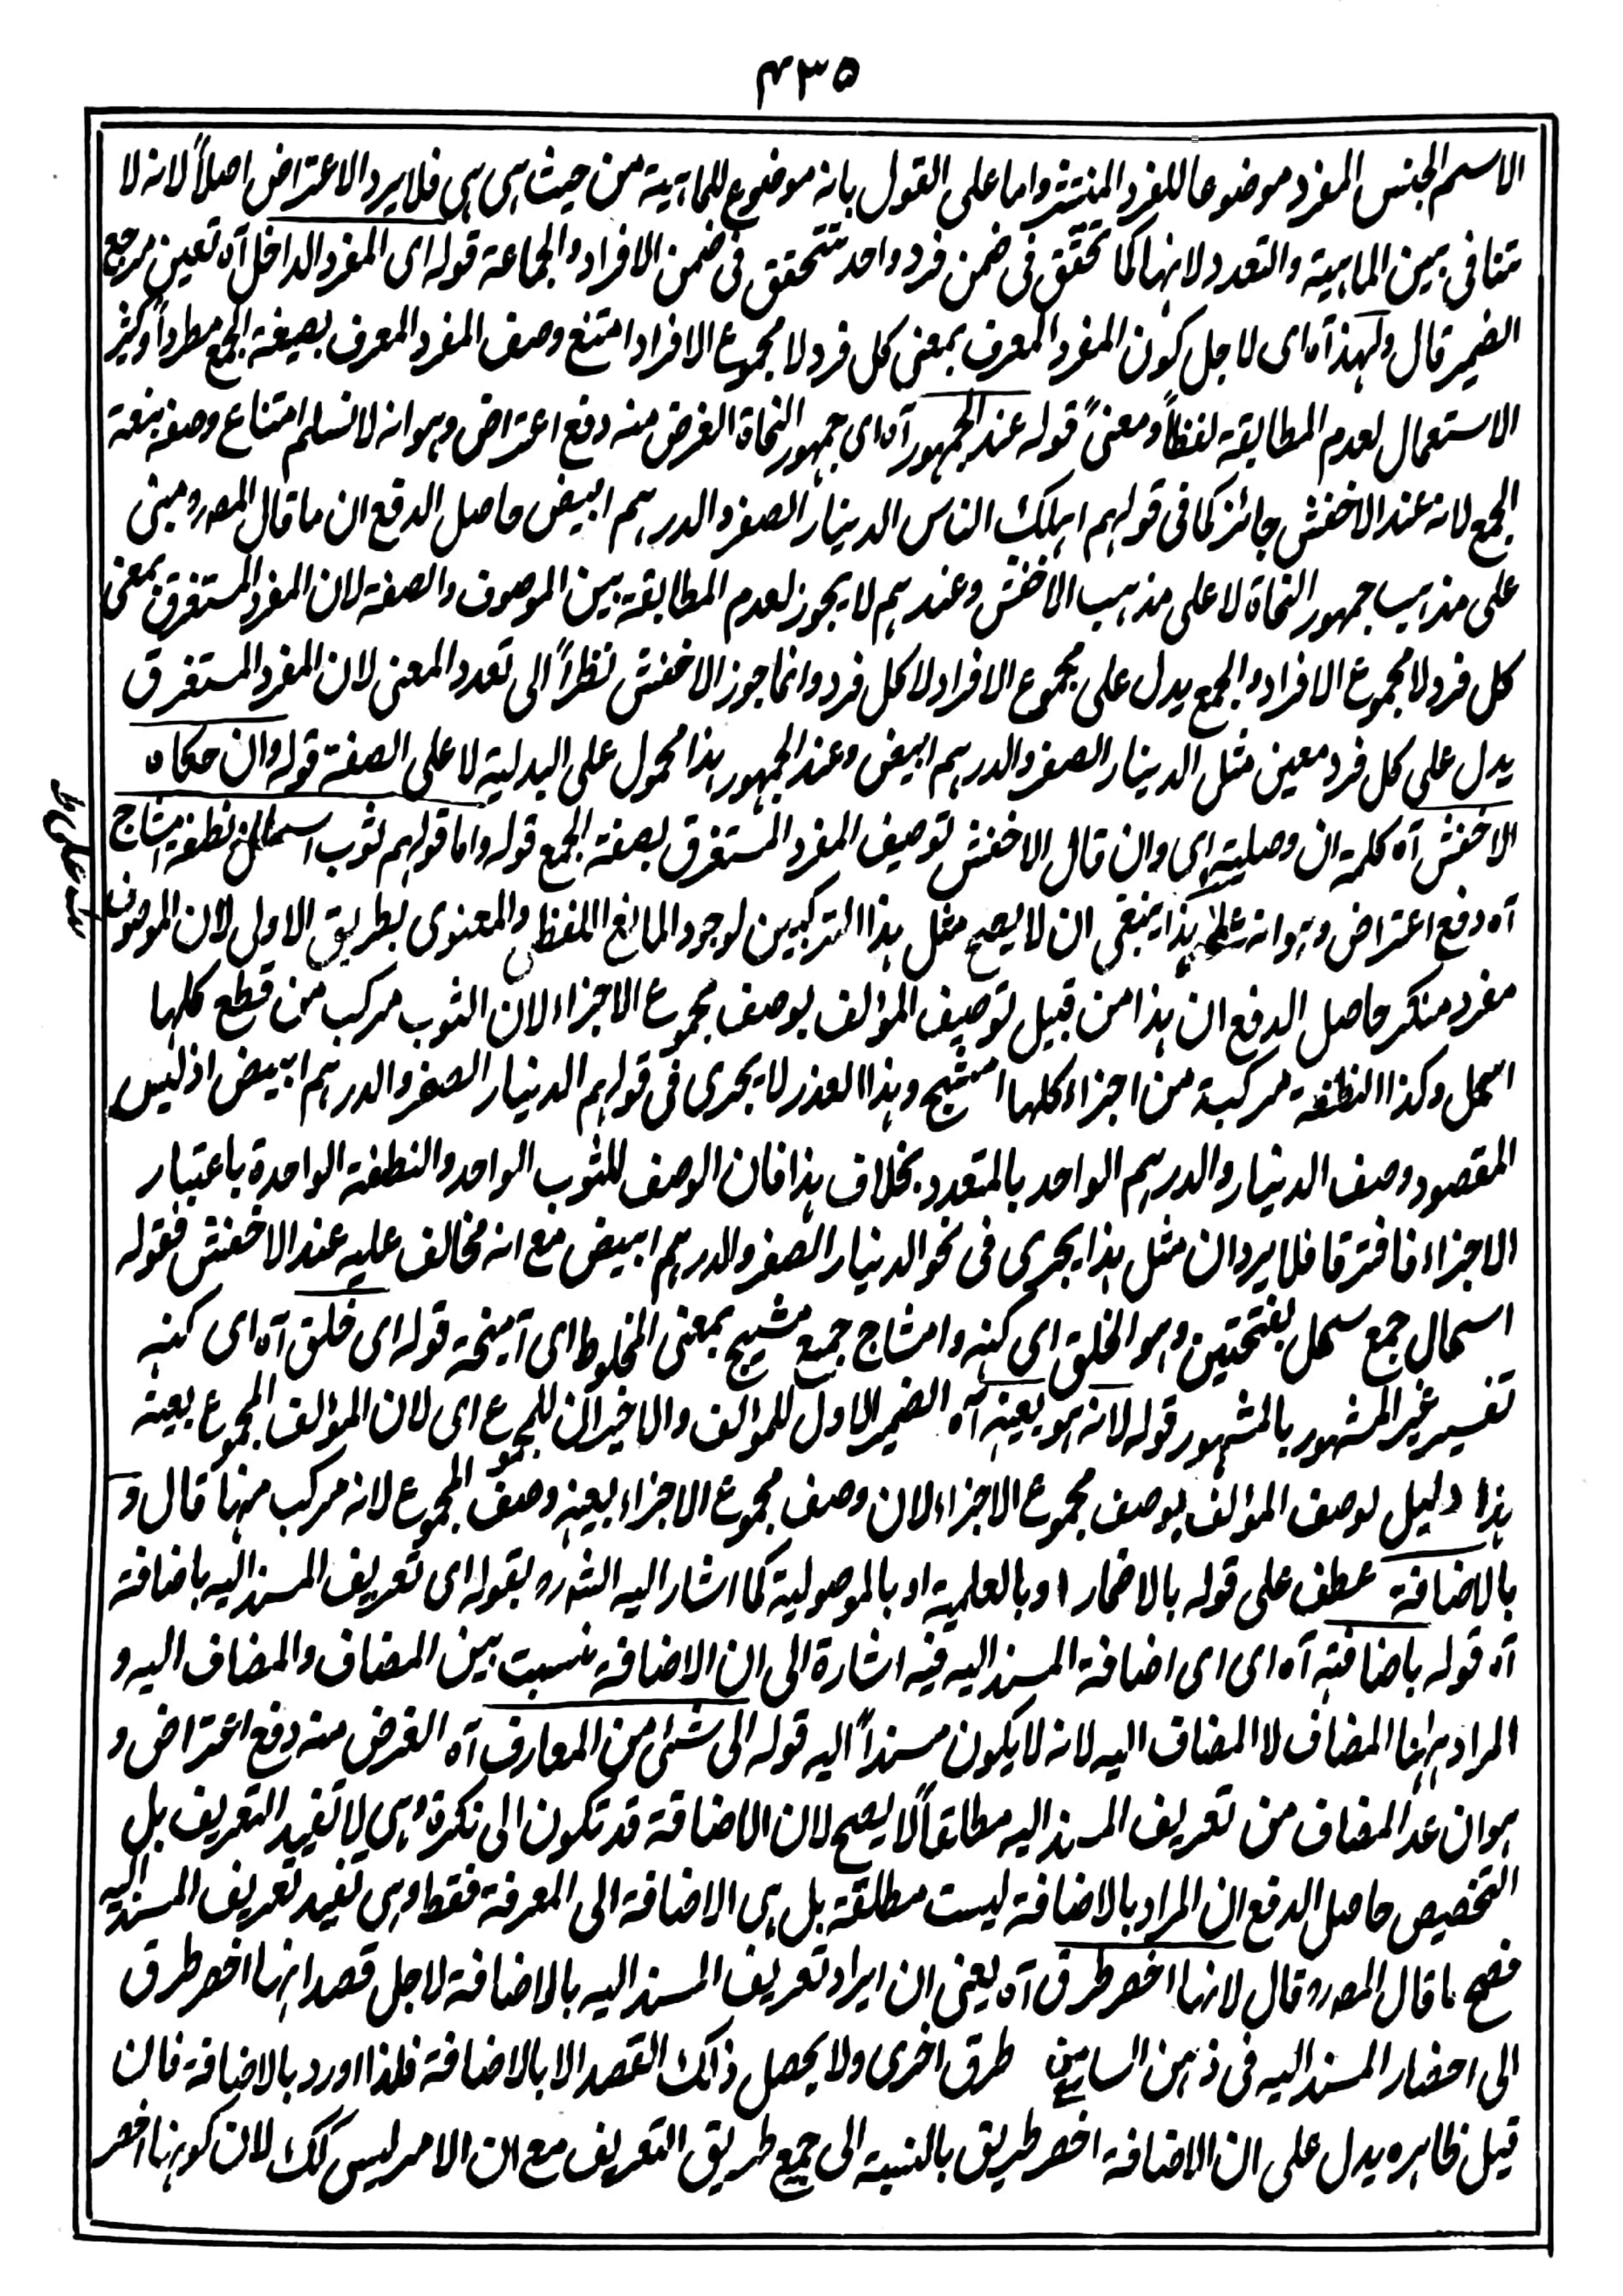 ٤٣٥
الاسم الجنس المفرد موضوعا للفرد المنتشر واما على القول بانه موضوع للماهية من حيث هى هى فلا يرد الاعتراض اصلاً لانه لا
تنافى بين الماهية والتعدد لانها كما تحقق فى ضمن فرد واحد تتحقق فى ضمن الافراد والجماعة قوله اى المفرد الداخل آه تعين مرجع
الضمير قال ولهذا آه اى لاجل كون المفرد المعرف بمعنى كل فرد لا مجموع الافراد امتنع وصف المفرد المعرف بصيغة الجمع مطرداً وكثير
الاستعمال لعدم المطابقة لفظاً ومعنىً قوله عند الجمهور آه اى جمهور النحاة الغرض منه دفع اعتراض وهو انه لا نسلم امتناع وصفه بنعت
الجمع لانه عند الاخفش جائز كما فى قولهم اهلك الناس الدينار الصفر والدرهم البيض حاصل الدفع ان ما قال المصرو مبنى
على مذهب جمهور النحاة لا على مذهب الاخفش وعندهم لا يجوز لعدم المطابقة بين الموصوف والصفة لان المفرد المستغرق بمعنى
كل فرد لا مجموع الافراد والجمع يدل على مجموع الافراد لا كل فرد وانما جوز الاخفش نظراً الى تعدد المعنى لان المفرد المستغرق
يدل على كل فرد معين مثل الدينار الصفر والدرهم البيض وعند الجمهور هذا محمول على البدلية لا على الصفة قوله وان حكاه
الاخفش آه كلمة ان وصلية اى وان قال الاخفش توصيف المفرد المستغرق بصفة الجمع قوله واما قولهم ثوب اسمال ونطفة امشاج
آه دفع اعتراض وهو انه على هذا ينبغى ان لا يصح مثل هذا التركيبين لوجود المانع اللفظى والمعنوى بطريق الاولى لان الموصوف
مفرد منكر حاصل الدفع ان هذا من قبيل توصيف المؤلف بوصف مجموع الاجزاء لان الثوب مركب من قطع كلها
اسمل وكذا النطفة مركبة من اجزاء كلها امشج وهذا العذر لا يجرى فى قولهم الدينار الصفر والدرهم البيض اذ ليس
المقصود وصف الدينار والدرهم الواحد بالمتعدد بخلاف هذا فان الوصف للثوب الواحد والنطفة الواحدة باعتبار
الاجزاء فافترقا فلا يرد ان مثل هذا يجرى فى نحو الدينار الصفر والدرهم البيض مع انه مخالف عليه عند الاخفش فقوله
اسمال جمع سمل بفتحتين وهو الخلق اى كهنه وامشاج جمع مشيج بمعنى المخلوط اى آميخة قوله اى خلق آه اى كهنه
تفسير غير المشهور بالمشهور قوله لانه هو بعينه آه الضمير الاول للمؤلف والاخيران للمجموع اى لان المؤلف المجموع بعينه
هذا دليل لوصف المؤلف بوصف مجموع الاجزاء لان وصف مجموع الاجزاء بعينه وصف المجموع لانه مركب منها قال و
بالاضافة عطف على قوله بالاضمار او بالعلمية او بالموصولية كما اشار اليه الشه رو بقوله اى تعريف المسند اليه باضافة
آه قوله باضافته آه اى اى اضافة المسند اليه فيه اشارة الى ان الاضافة نسبت بين المضاف والمضاف اليه و
المراد ههنا المضاف لا المضاف اليه لانه لا يكون مسنداً اليه قوله الى شئ من المعارف آه الغرض منه دفع اعتراض و
هو ان عد المضاف من تعريف المسند اليه مطلقاً لا يصح لان الاضافة قد تكون الى نكرة وهى لا تفيد التعريف بل
التخصيص حاصل الدفع ان المراد بالاضافة ليست مطلقة بل هى الاضافة الى المعرفة فقط وهى تفيد تعريف المسند اليه
فصح ما قال المصرو قال لانها اخصر طرق آه يعنى ان ايراد تعريف المسند اليه بالاضافة لاجل قصد انها اخصر طرق
الى احضار المسند اليه فى ذهن السامع من طرق اخرى ولا يحصل ذلك القصد الا بالاضافة فلذا اورد بالاضافة فان
قيل ظاهره يدل على ان الاضافة اخصر طريق بالنسبة الى جميع طريق التعريف مع ان الامر ليس كك لان كونها اخصر